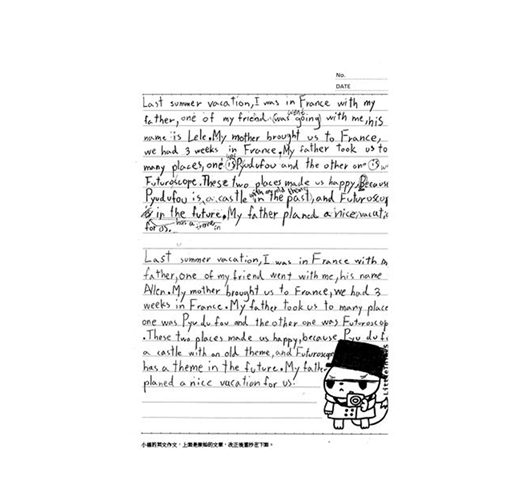 No.
DATE
Last summer vacation, I was in France with my
father, one of my friend (was going) went with me, his
name is Lele. My mother brought us to France,
we had 3 weeks in France. My father took us to
many places, one is was Pyudufou and the other one is w
Futuroscope. These two places made us happy, Because
Pyudufou is a castle with an old theme in the past, and Futuroscop
is in the future. My father planed a nice vacati
for us. has a theme in
Last summer vacation, I was in France with m
father, one of my friend went with me, his name
Allen. My mother brought us to France, we had 3
weeks in France. My father took us to many place
one was Pyu du fou and the other one was Futuroscop
. These two places made us happy, because Pyu du fo
a castle with an old theme, and Futuroscope
has a theme in the future. My fath
planed a nice vacation for us.